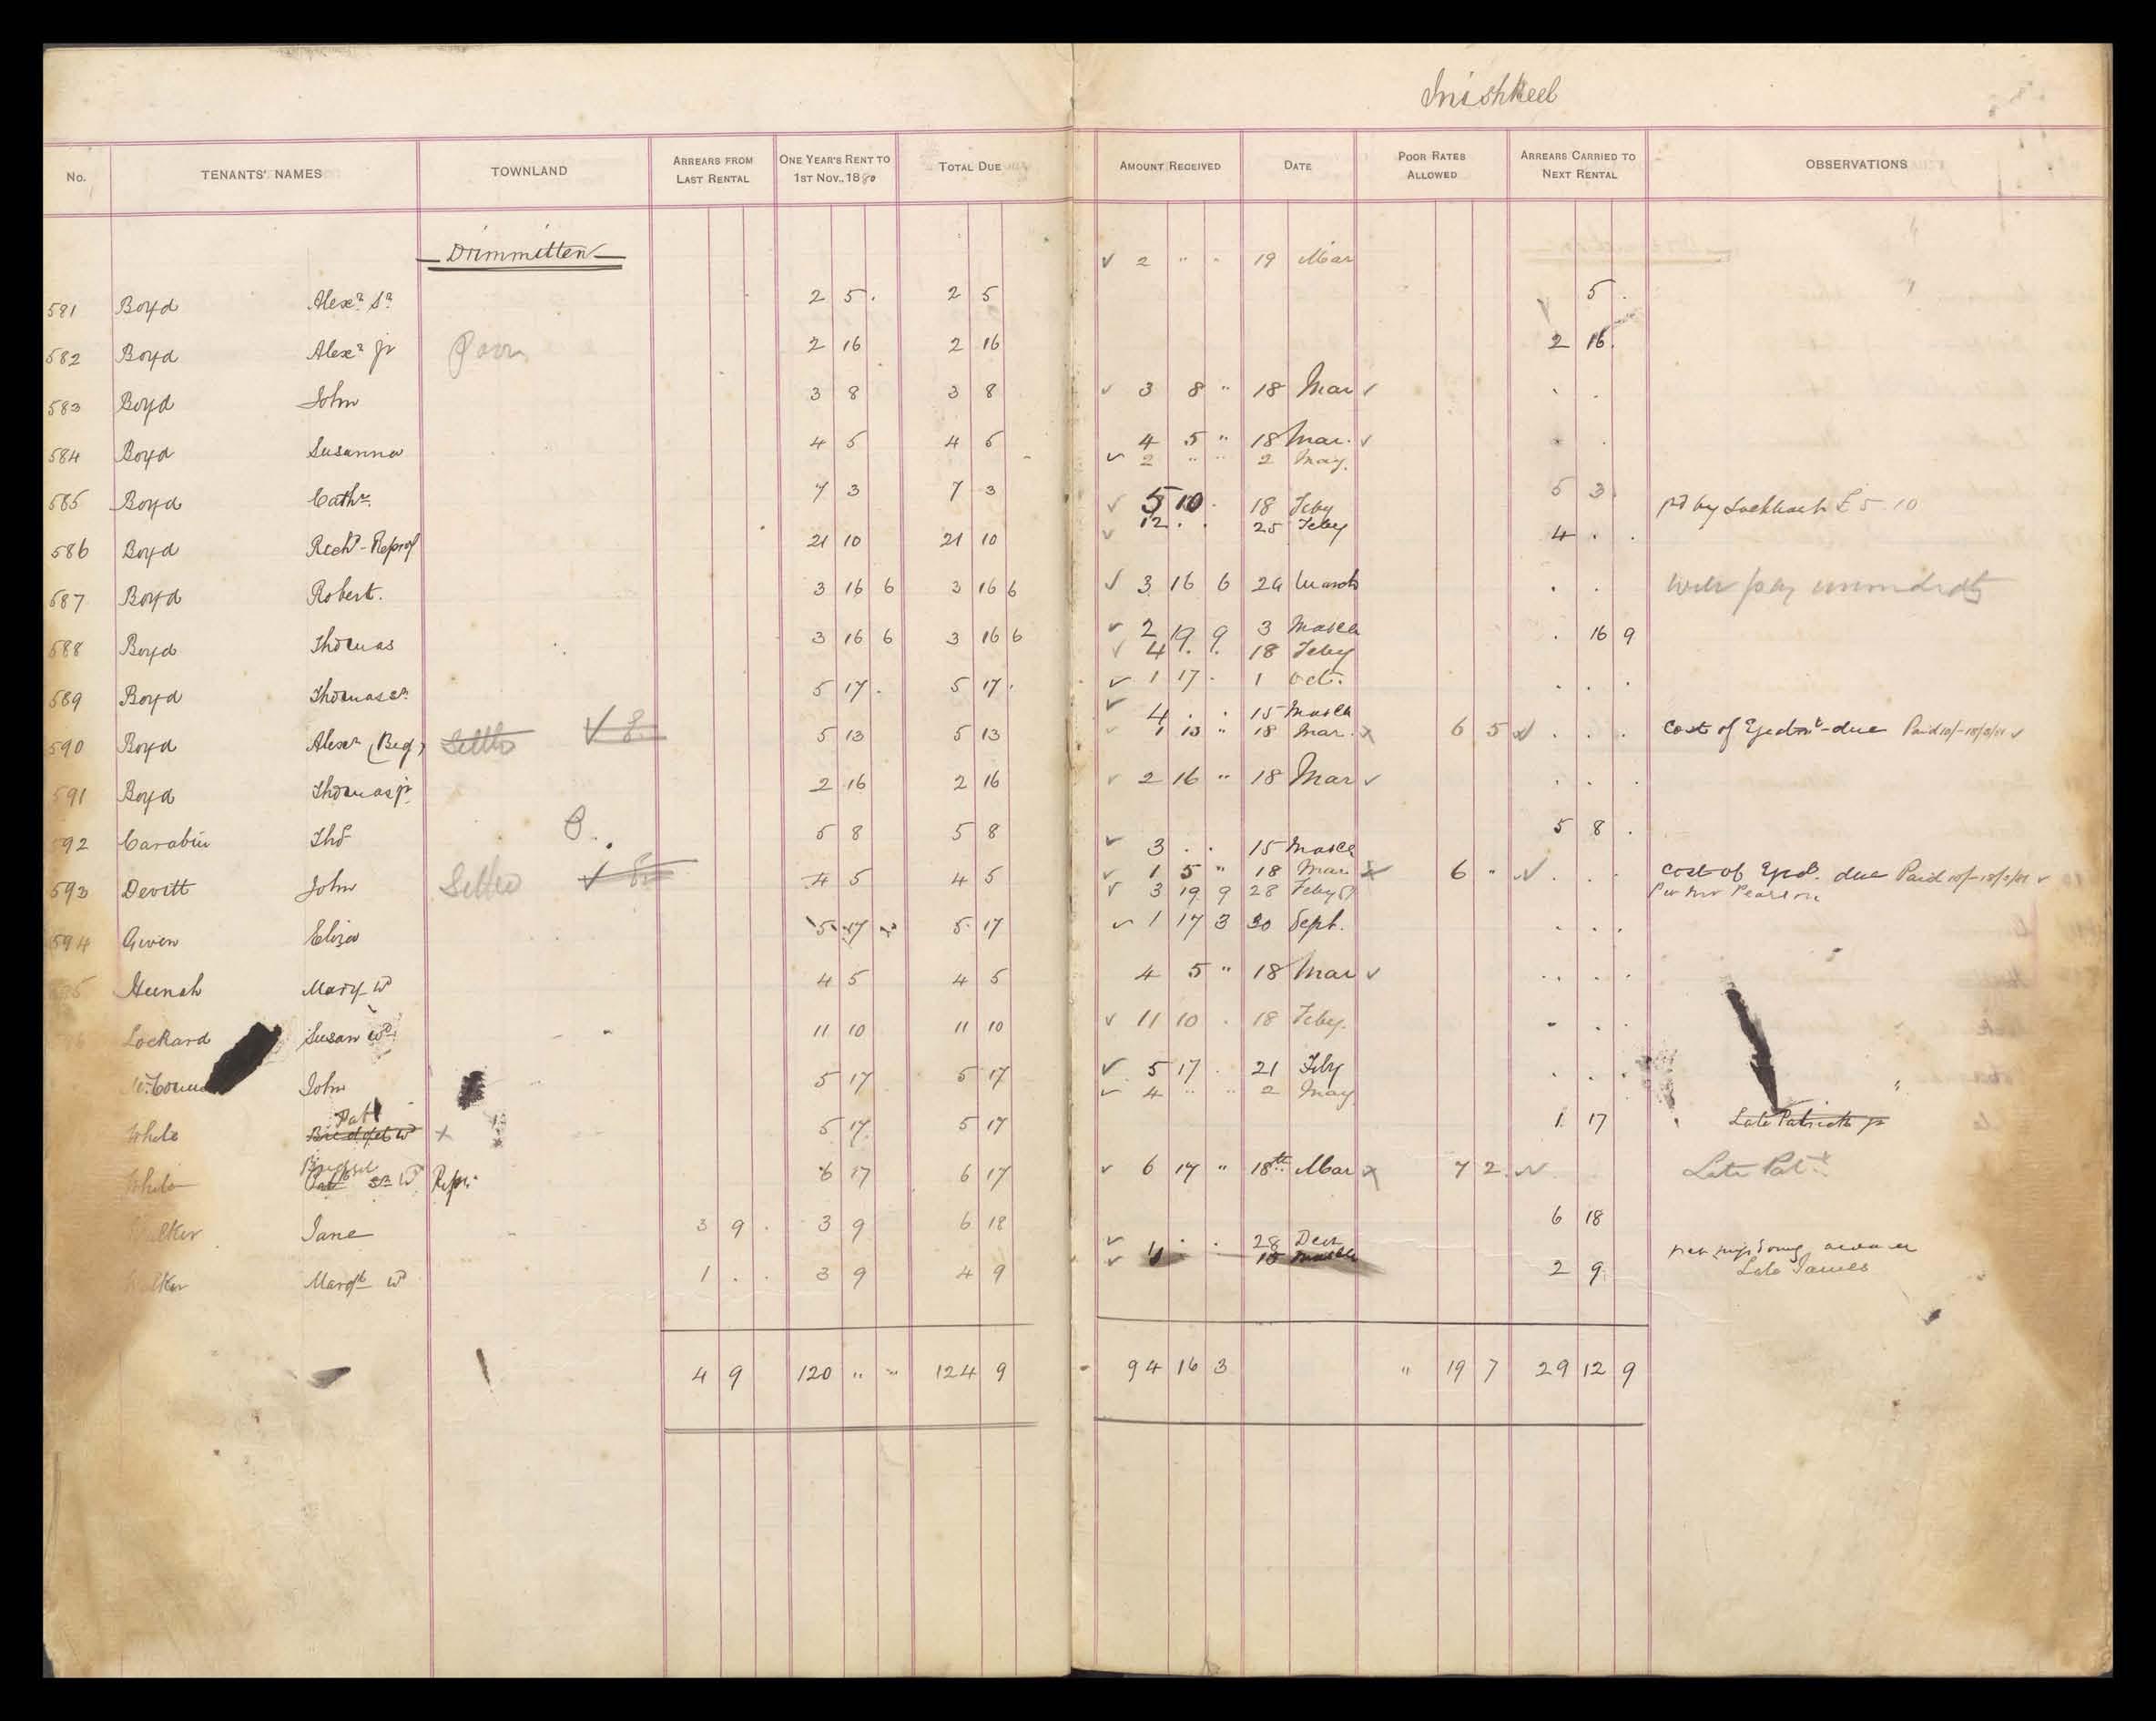 Inishkeel
No. TENANTS' NAMES TOWNLAND ARREARS FROM LAST RENTAL ONE YEAR'S RENT TO 1ST NOV., 1880 TOTAL DUE AMOUNT RECEIVED DATE POOR RATES ALLOWED ARREARS CARRIED TO NEXT RENTAL OBSERVATIONS
Drimmitten
✓ 2 " " 19 Mar
581 Boyd Alexr Sr 2 5 . 2 5 5 .
582 Boyd Alexr Jr Poor 2 16 2 16 2 16 .
583 Boyd John 3 8 3 8 ✓ 3 8 " 18 Mar ✓ . .
584 Boyd Susanna 4 5 4 5 4 5 " 18 Mar. ✓ . .
✓ 2 " " 2 May.
585 Boyd Cathe 7 3 7 3 ✓ 5 10 . 18 Feby 5 3 pd by Lockhart £5.10
586 Boyd Richd - Repros 21 10 21 10 ✓ 12 . . 25 Feby 4 . .
587 Boyd Robert. 3 16 6 3 16 6 ✓ 3 16 6 24 March . . will pay
588 Boyd Thomas 3 16 6 3 16 6 ✓ 2 19 9 3 March . 16 9
✓ 4 . . 18 Feby
589 Boyd Thomas sr 5 17 . 5 17 . ✓ 1 17 . 1 Oct. . . .
✓ 4 . . 15 March
590 Boyd Alexr (Big) Settle 5 13 5 13 ✓ 1 13 " 18 Mar. x 6 5 ✓ . . . Cost of Ejectmt due Paid 10/- 18/3/81 ✓
591 Boyd Thomas jr 2 16 2 16 ✓ 2 16 " 18 Mar ✓ . . .
592 Carabin Thos 5 8 5 8 5 8 .
✓ 3 . . 15 March
593 Devitt John Settle 4 5 4 5 ✓ 1 5 " 18 Mar x 6 " ✓ . . . Cost of Ejed. due Paid 10/- 18/3/81 ✓
✓ 3 19 9 28 Feby Per Mr Pearson
594 Given Eliza 5 17 5 17 ✓ 1 17 3 30 Sept. . . .
595 Hunah Mary Wd 4 5 4 5 4 5 " 18 Mar ✓ . . .
Lockard Susan Wd 11 10 11 10 ✓ 11 10 . 18 Feby. . . .
John 5 17 5 17 ✓ 5 17 . 21 Feby . . .
✓ 4 " " 2 May
White Pat Bridget Wd x 5 17 5 17 1 17 Late Patrick jr
White Bridget Patk sr Wd Repr. 6 17 6 17 ✓ 6 17 " 18th Mar x 7 2 ✓ Late Patk
Walker Jane 3 9 . 3 9 6 18 6 18
✓ 28 Decr
Walker Margt Wd 1 . . 3 9 4 9 ✓ 15 March 2 9 Late James
4 9 120 " " 124 9 94 16 3 " 19 7 29 12 9